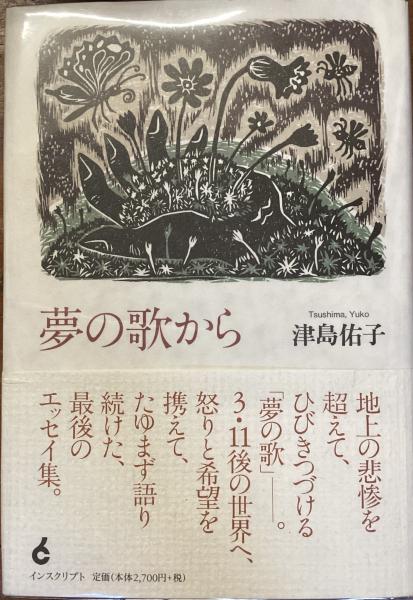 夢の歌から
Tsushima, Yuko
津島佑子
地上の悲惨を
超えて、
ひびきつづける
「夢の歌」――。
3・11後の世界へ、
怒りと希望を
携えて、
たゆまず語り
続けた、
最後の
エッセイ集。
インスクリプト 定価(本体2,700円+税)